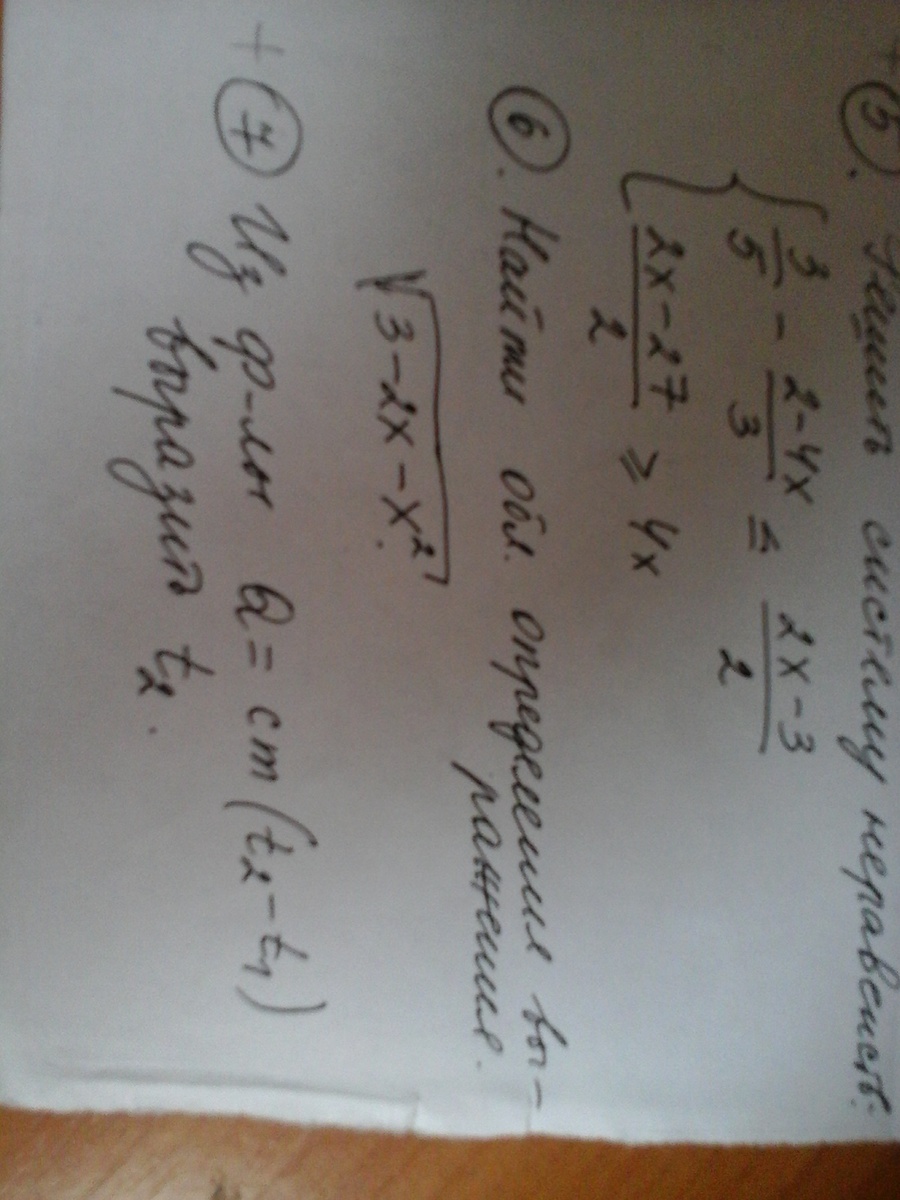 + 5. Решить систему неравенств:
{ 3/5 - (2-4x)/3 ≤ (2x-3)/2
(2x-27)/2 ≥ 4x
6. Найти обл. определения вы-
ражения.
√(3-2x-x²).
+ 7 Из ф-лы Q = cm(t₂-t₁)
выразить t₂.